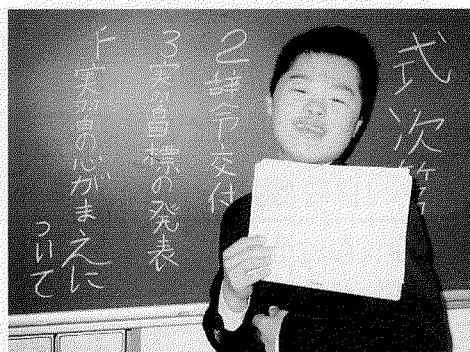 式次第
2辞令交付
3実習目標の発表
4実習の心がまえに
ついて